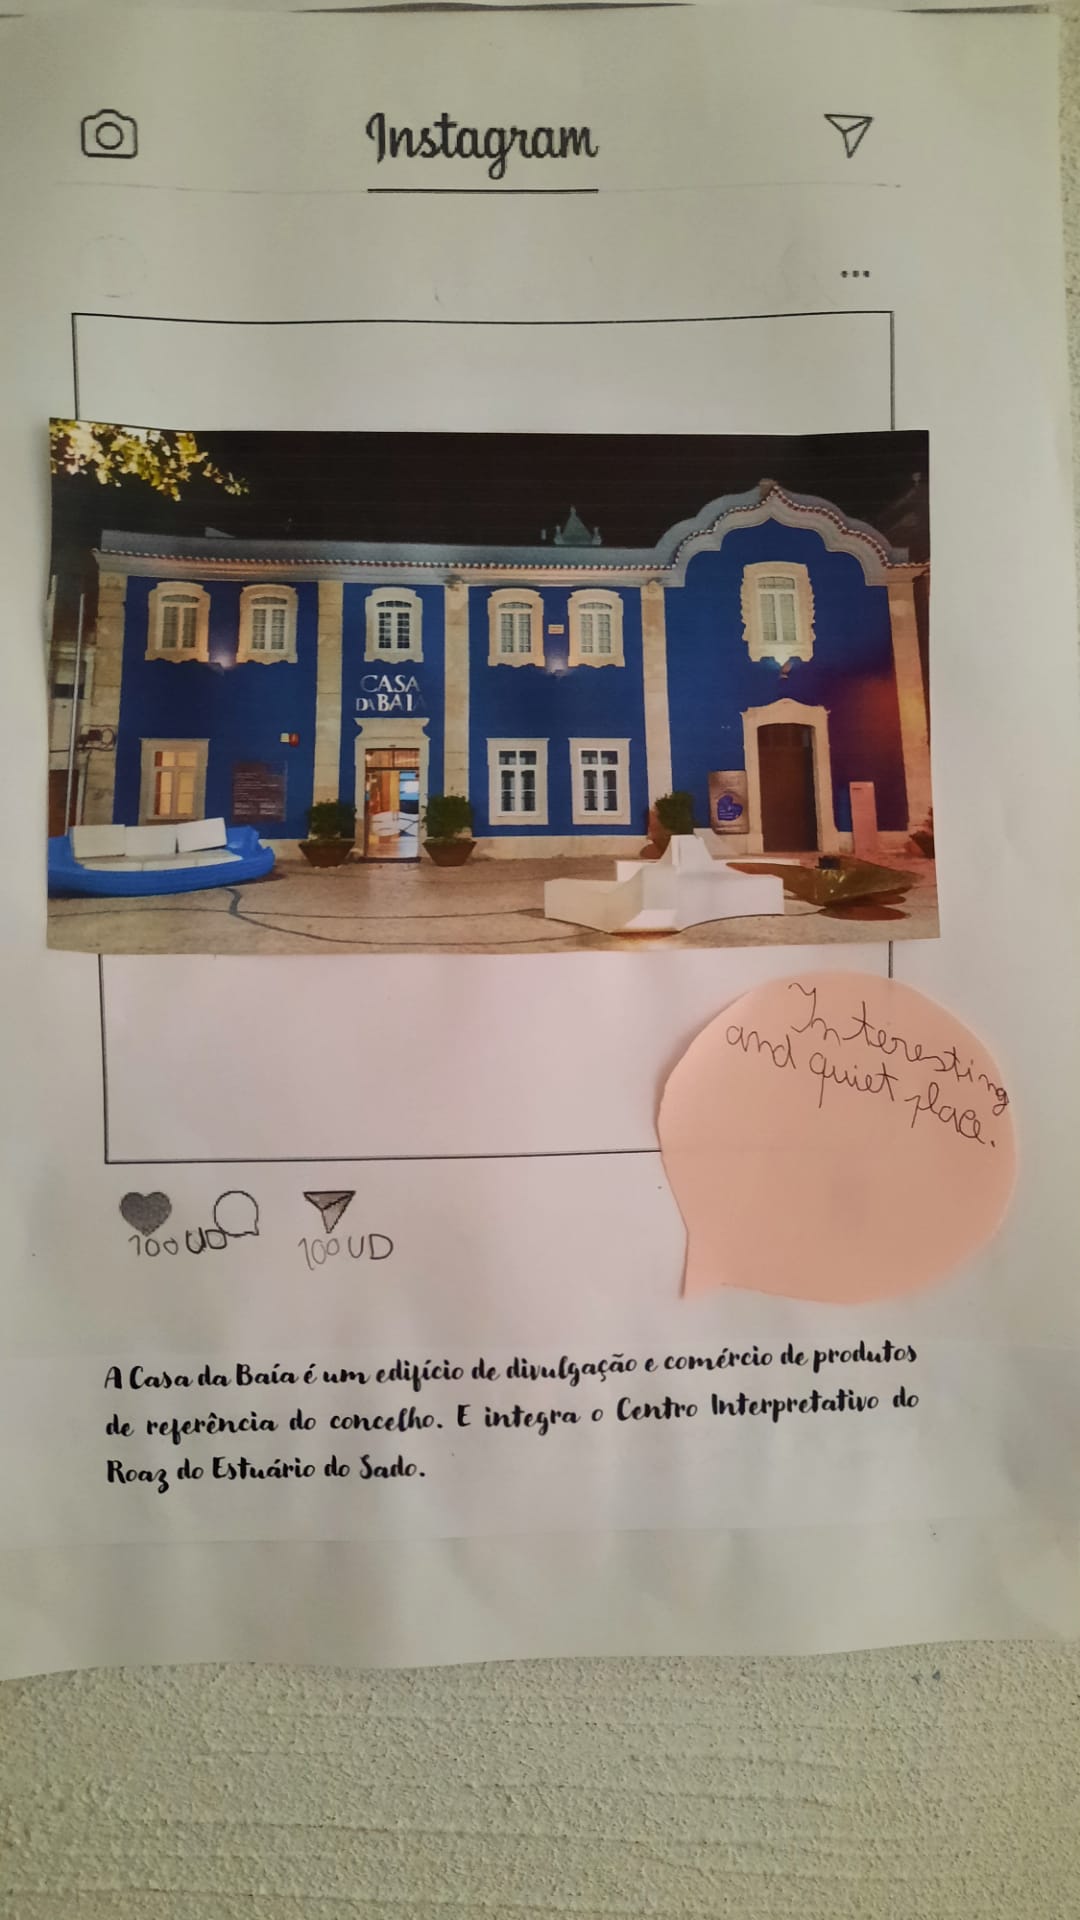 Instagram
CASA
DA BAIA
Interesting
and quiet place.
100 UD
100 UD
A Casa da Baía é um edifício de divulgação e comércio de produtos
de referência do concelho. E integra o Centro Interpretativo do
Roaz do Estuário do Sado.